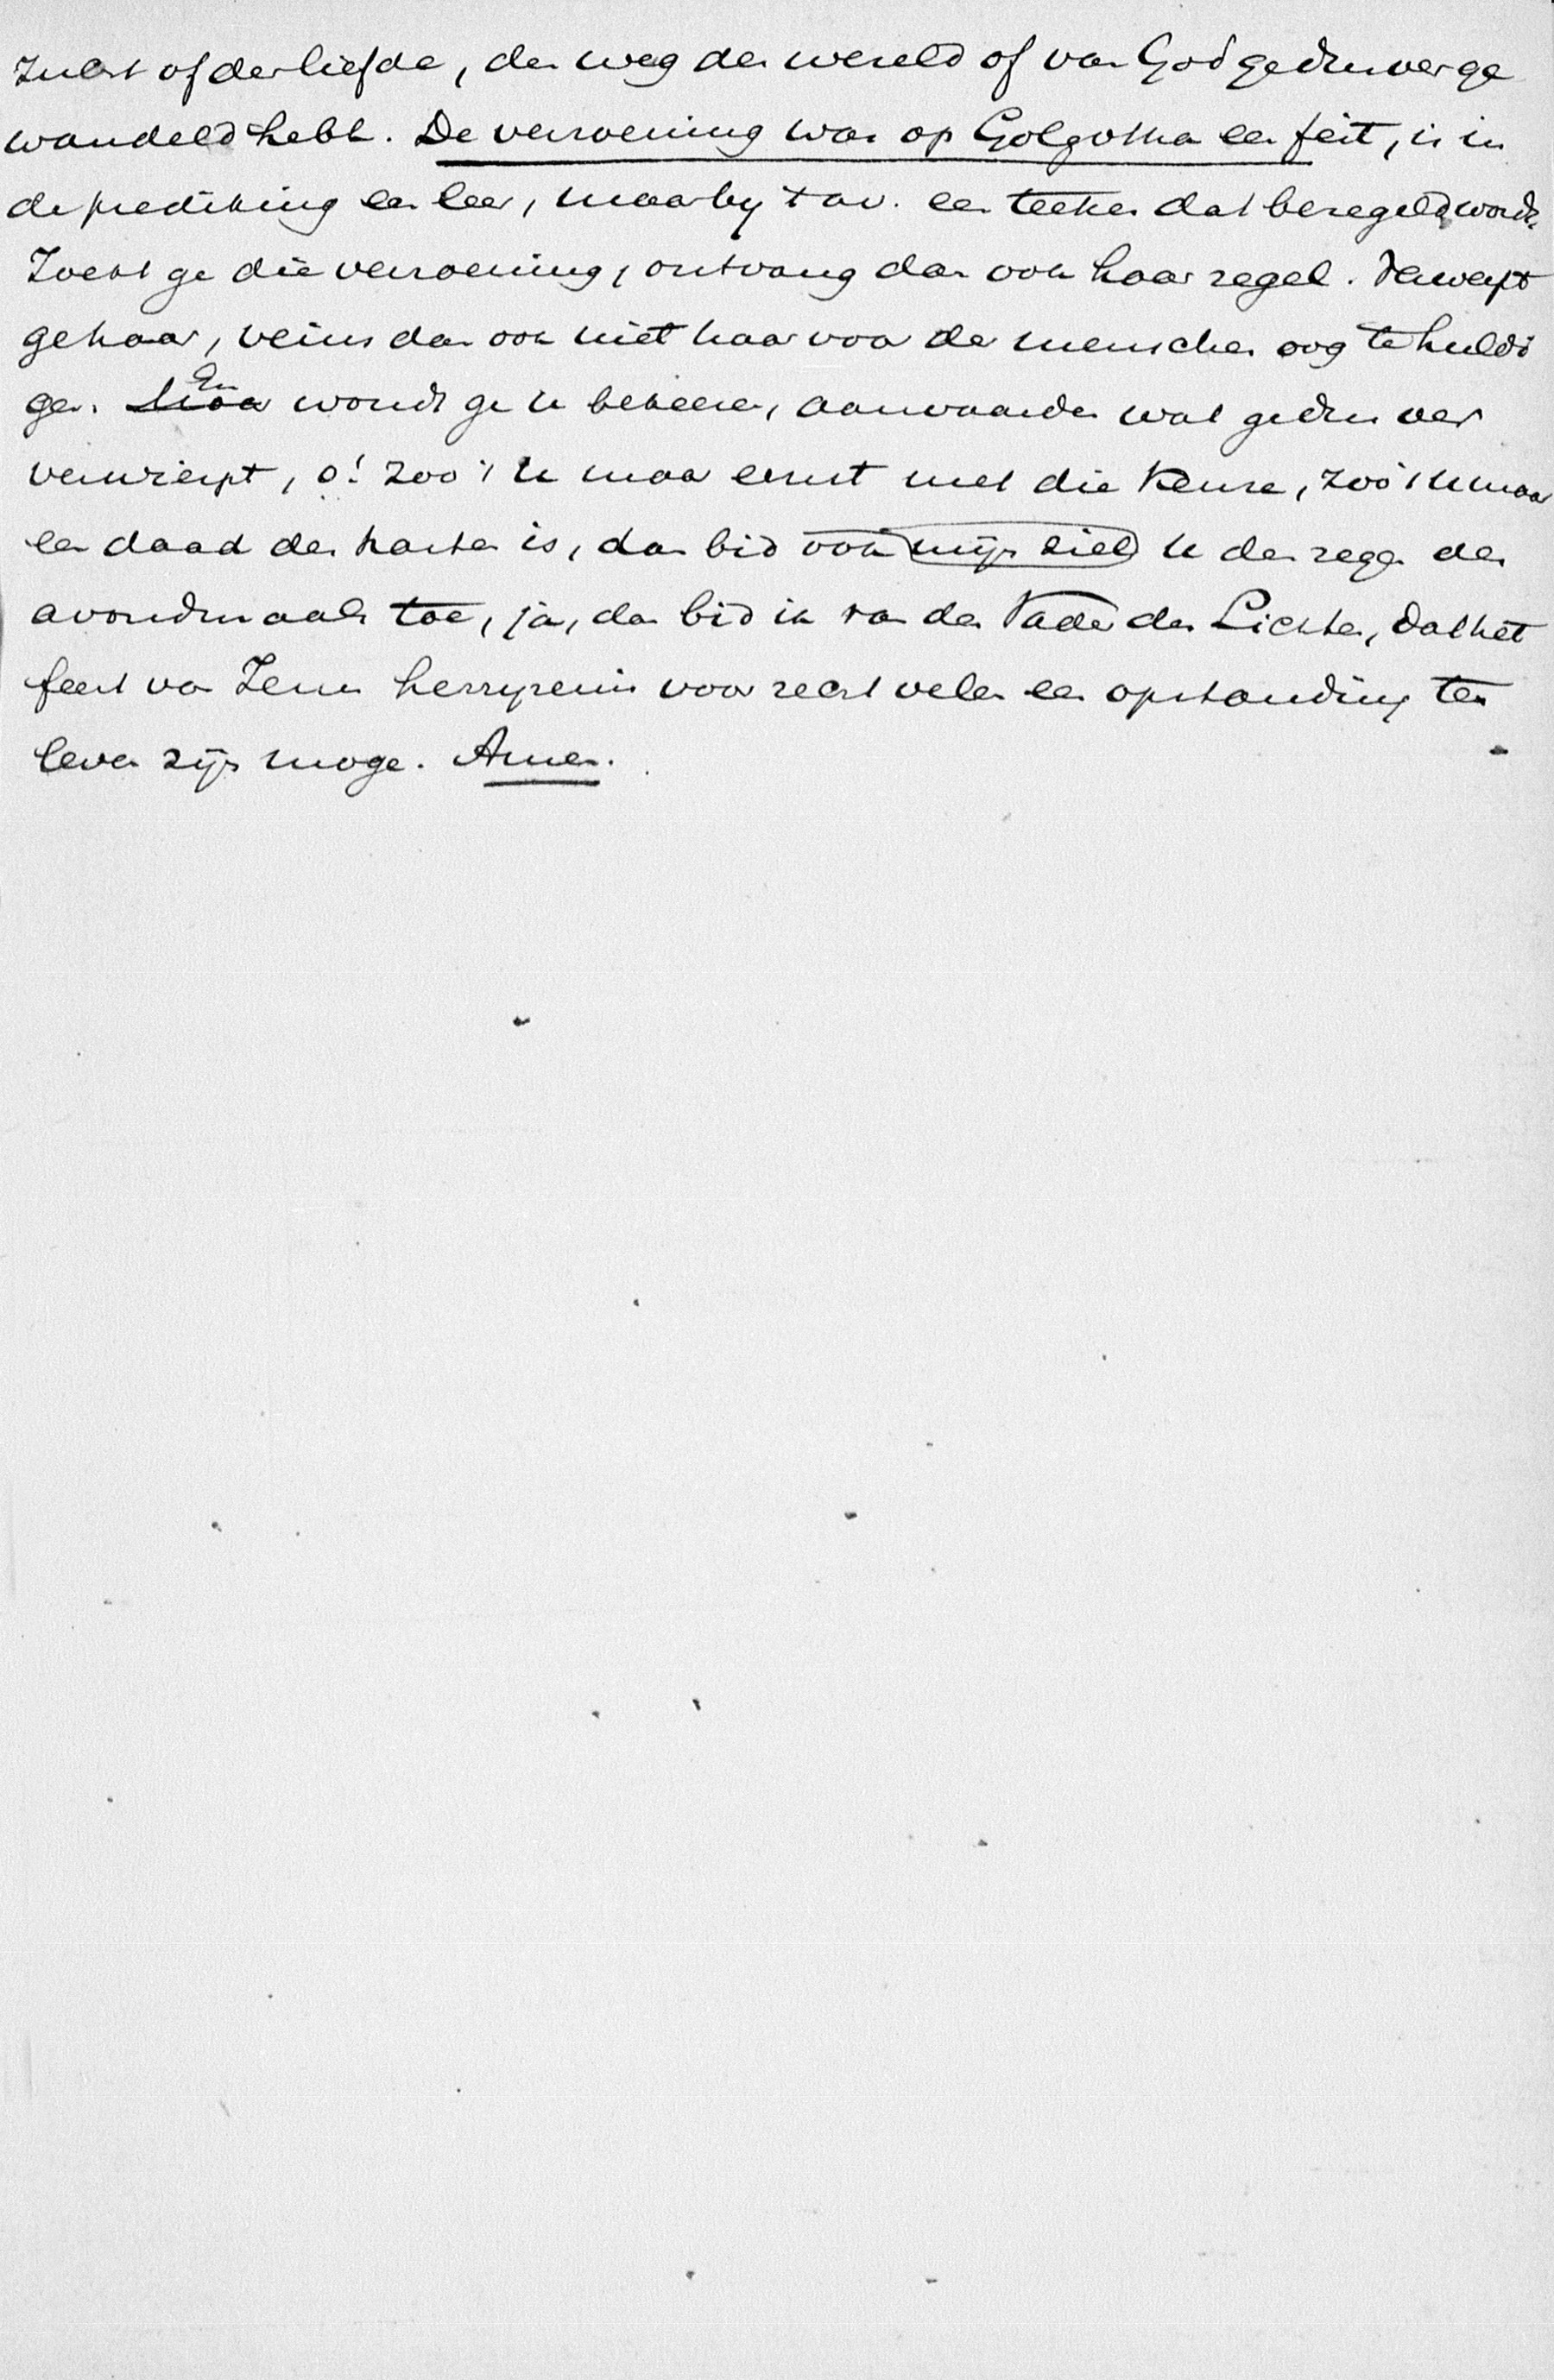 zucht of der liefde, den weg der wereld of van God gedurver ge
wandeld hebt. De verzoening was op Golgotha een feit, is in
de prediking een leer, maar by t av. een teeken dat bezegeld wordt.
Zoekt ge die verzoening, ontvang dan ook haar zegel. Verwerpt
ge haar, veins dan ook niet haar voor der menschen oog te huldi
gen. En woudt ge u bekeeren, aanvaarden wat ge dus ver
verwierpt, o! zoo 't u maar ernst met die keuze, zoo 't u maar
een daad des harten is, dan bid ook mijn ziel u den zegen des
avondmaals toe, ja, dan bid ik van den Vader der Lichten, dat het
feest van Jezus herryzenis voor recht velen een opstanding ten
leven zijn moge. Amen.